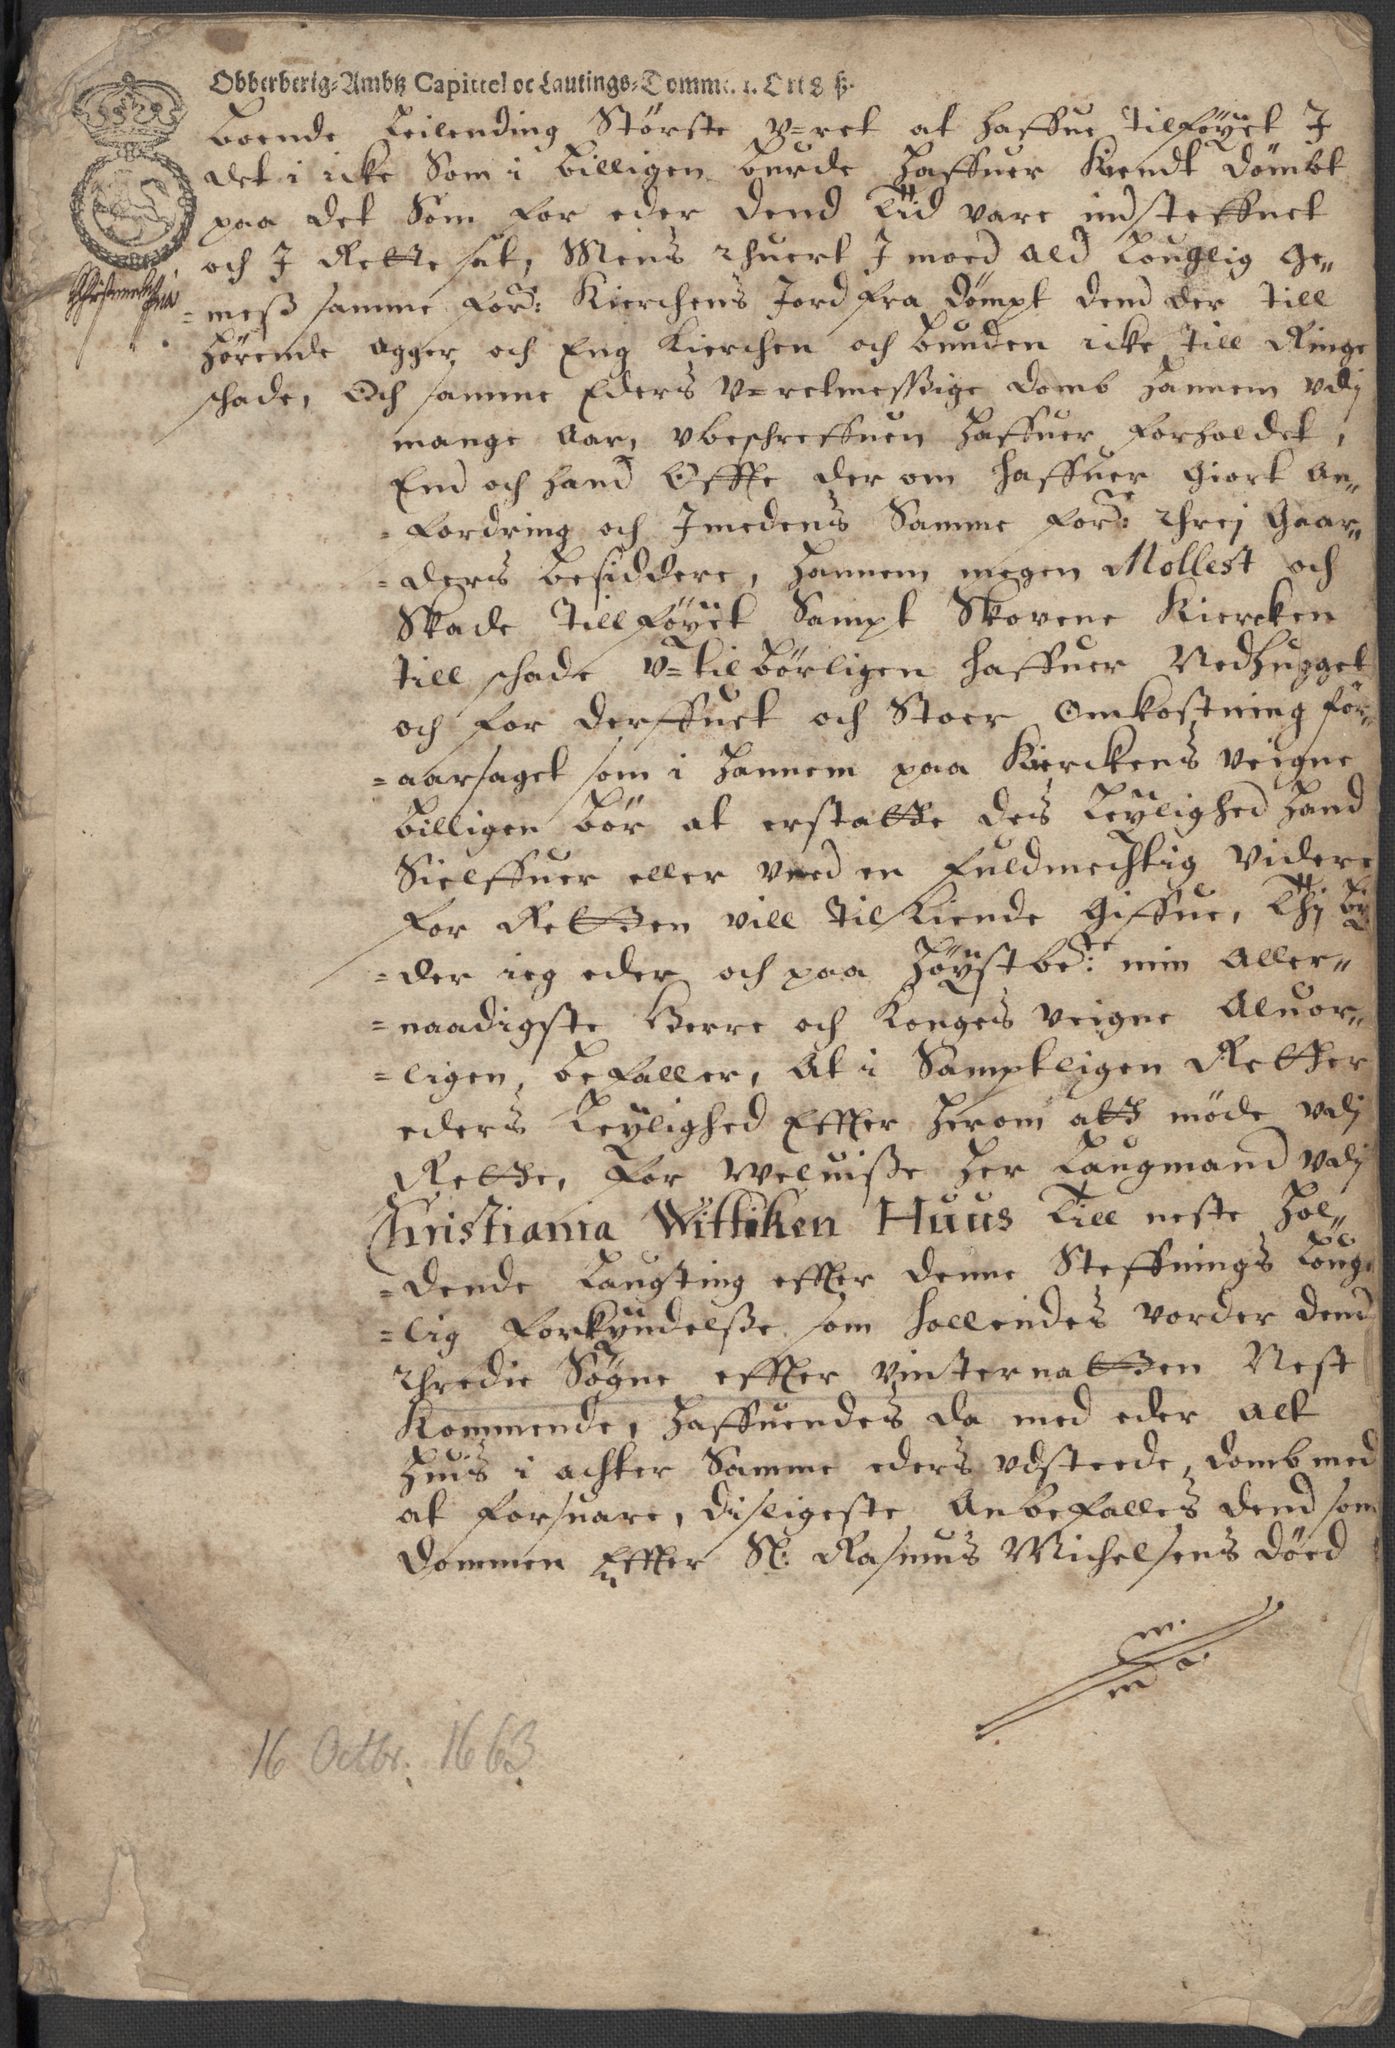 Obberberig-Ambtz Capittel oc Lautings-Domme. 1. Ort 8 ß.
boende Leilending Største V=ret at haffue tilføyet J
det i icke Som i billigen burde haffuer Kiendt dømbt
paa det Som for eder dend Tiid vare indsteffnet
och J Rette sat, Mens thuert J moed ald Louglig Ge„
=meß samme ford: Kierchens Jord fra dømpt dend der till
hørende agger och Eng Kierchen och bunden icke till Ringe
schade, Och samme Eders V=retmessige domb hannem vdj
mange Aar, vbeschreffuen haffuer forholdet,
End och hand Offte der om haffuer giort An„
=fordring och Jmedens Samme ford: threj Gaar„
=ders besiddere, hannem megen Mollest och
Skade tillføyet Sampt Skovene Kiercken
till schade v=tilbørligen haffuer Nedhugget
och for derffuet och Stoer Omkostning for„
=aarsaget som i hannem paa Kierckens veigne
billigen bør at erstatte des Leylighed hand
Sielffuer eller ved en fuldmechtig Videre
for Retten vill tilkiende giffue, Thj biu
=der ieg eder och paa høystbete: min Aller„
=naadigste Herre och Konges veigne Aluor„
=ligen, befaller, At i Samptligen Retter
eders Leylighed Effter herom att møde vdj
Rette, for Weluiße her Laugmand vdj
Christiania Wittiken Huus Till neste hol„
=dende Laugting effter denne Steffnings Loug„
=lig forkyndelße som hollendes vorder dend
thredie Søgne effter vinternatten Nest
Kommende, haffuendes da med eder alt
huis i achter Samme eders vdsteede, domb med
at forsuare, disligeste Anbefalles dend som
dommen Effter Sl: Rasmus Michelsens døed
16 Octbr. 1663